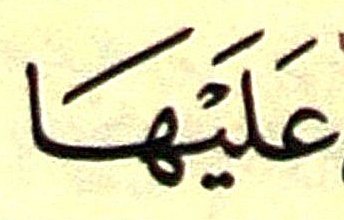 عَلَيْهَا